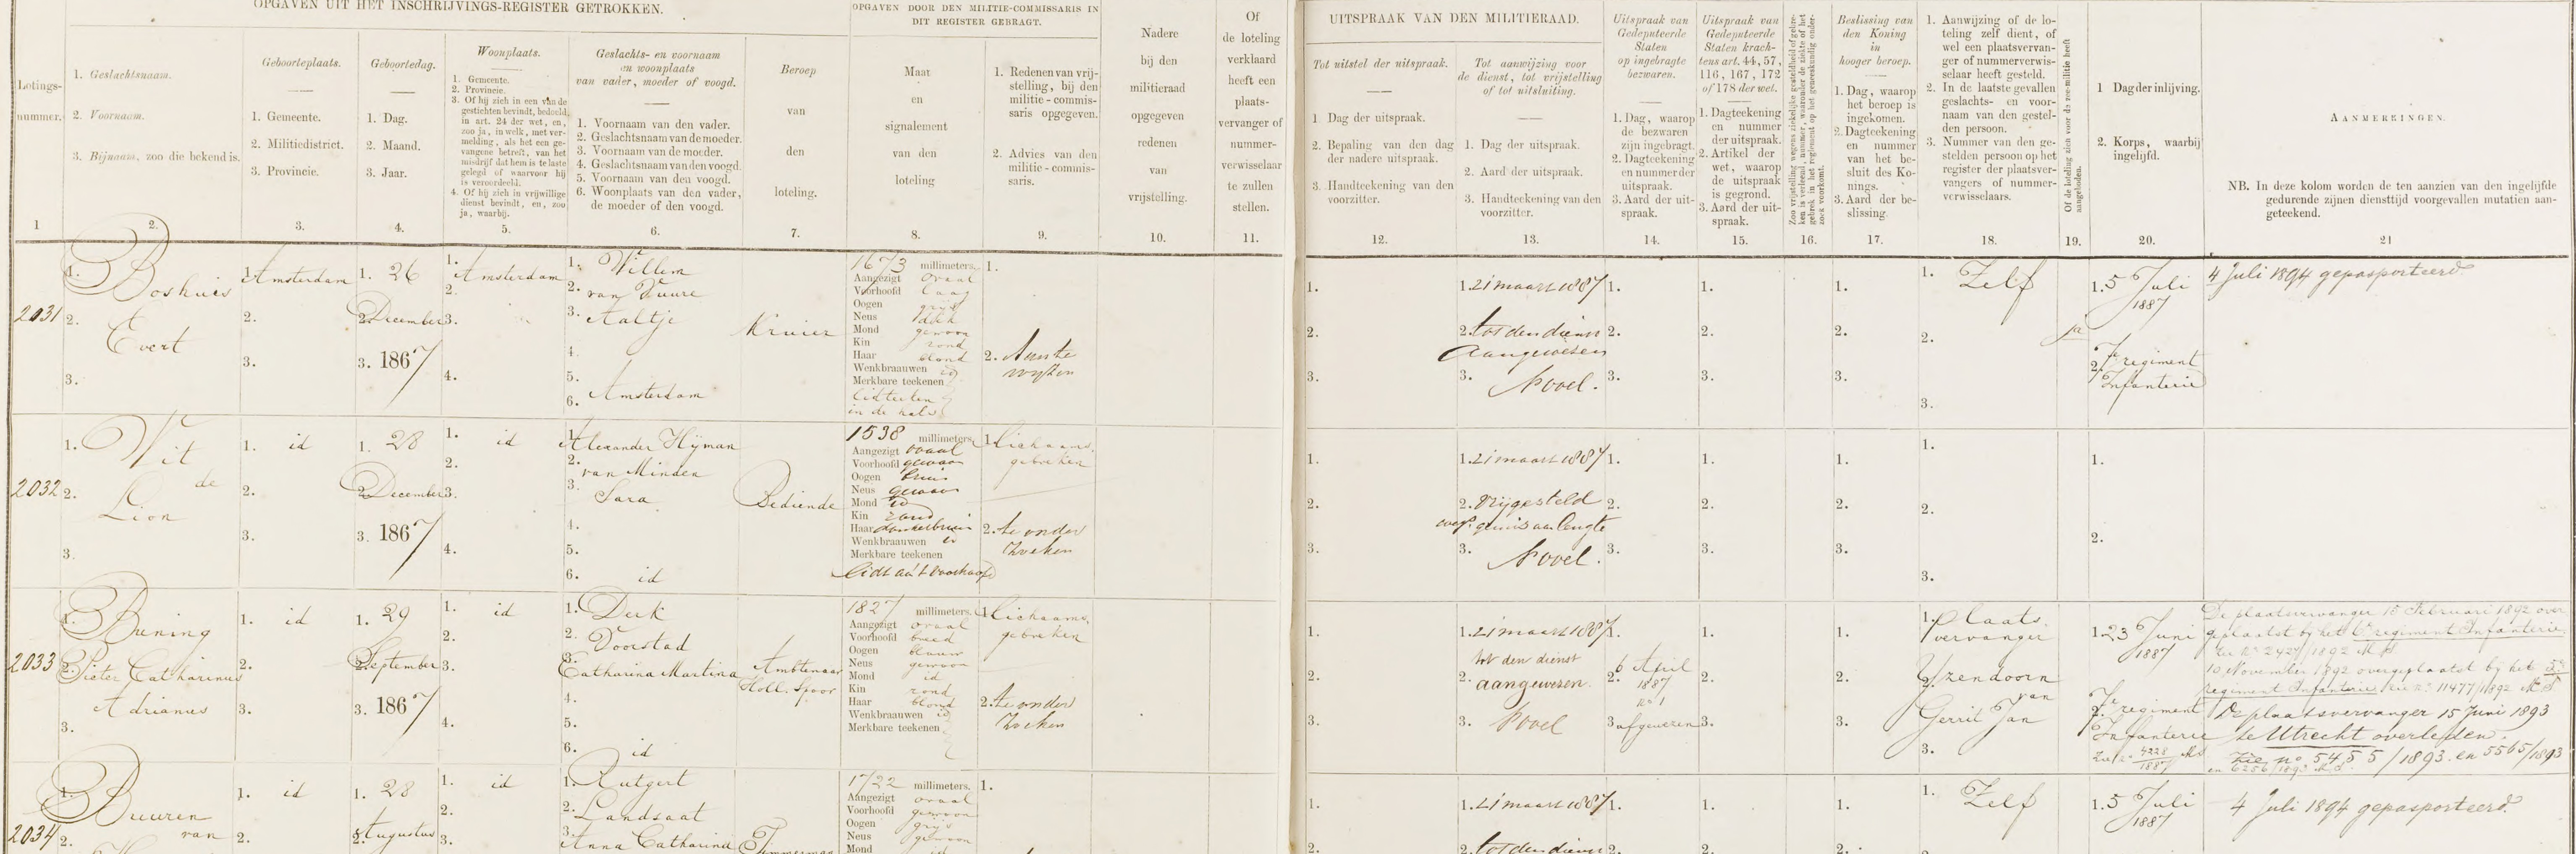 OPGAVEN UIT HET INSCHRIJVINGS-REGISTER GETROKKEN.
OPGAVEN DOOR DEN MILITIE-COMMISSARIS IN
DIT REGISTER GEBRAGT.
Lotings-
nummer.
1
1. Geslachtsnaam.
2. Voornaam.
3. Bijnaam, zoo die bekend is.
2.
Geboorteplaats.
1. Gemeente.
2. Militiedistrict.
3. Provincie.
3.
Geboortedag.
1. Dag.
2. Maand.
3. Jaar.
4.
Woonplaats.
1. Gemeente.
2. Provincie.
3. Of hij zich in een van de
gestichten bevindt, bedoeld
in art. 24 der wet, en,
zoo ja, in welk, met ver-
melding, als het een ge-
vangene betreft, van het
misdrijf dat hem is te laste
gelegd of waarvoor hij
is veroordeeld.
4. Of hij zich in vrijwillige
dienst bevindt, en, zoo
ja, waarbij.
5.
Geslachts- en voornaam
en woonplaats
van vader, moeder of voogd.
1. Voornaam van den vader.
2. Geslachtsnaam van de moeder.
3. Voornaam van de moeder.
4. Geslachtsnaam van den voogd.
5. Voornaam van den voogd.
6. Woonplaats van den vader,
de moeder of den voogd.
6.
Beroep
van
den
loteling.
7.
Maat
en
signalement
van den
loteling
8.
1. Redenen van vrij-
stelling, bij den
militie-commis-
saris opgegeven.
2. Advies van den
militie-commis-
saris.
9.
Nadere
bij den
militieraad
opgegeven
redenen
van
vrijstelling.
10.
Of
de loteling
verklaard
heeft een
plaats-
vervanger of
nummer-
verwisselaar
te zullen
stellen.
11.
UITSPRAAK VAN DEN MILITIERAAD.
Tot uitstel der uitspraak.
1. Dag der uitspraak.
2. Bepaling van den dag
der nadere uitspraak.
3. Handteekening van den
voorzitter.
12.
Tot aanwijzing voor
de dienst, tot vrijstelling
of tot uitsluiting.
1. Dag der uitspraak.
2. Aard der uitspraak.
3. Handteekening van den
voorzitter.
13.
Uitspraak van
Gedeputeerde
Staten
op ingebragte
bezwaren.
1. Dag, waarop
de bezwaren
zijn ingebragt.
2. Dagteekening
en nummer der
uitspraak.
3. Aard der uit-
spraak.
14.
Uitspraak van
Gedeputeerde
Staten krach-
tens art. 44, 57,
116, 167, 172
of 178 der wet.
1. Dagteekening
en nummer
der uitspraak.
2. Artikel der
wet, waarop
de uitspraak
is gegrond.
3. Aard der uit-
spraak.
15.
16.
Beslissing van
den Koning
in
hooger beroep.
1. Dag, waarop
het beroep is
ingekomen.
2. Dagteekening
en nummer
van het be-
sluit des Ko-
nings.
3. Aard der be-
slissing.
17.
1. Aanwijzing of de lo-
teling zelf dient, of
wel een plaatsvervan-
ger of nummerverwis-
selaar heeft gesteld.
2. In de laatste gevallen
geslachts- en voor-
naam van den gestel-
den persoon.
3. Nummer van den ge-
stelden persoon op het
register der plaatsver-
vangers of nummer-
verwisselaars.
18.
Of de loteling zich voor de zee-militie heeft
aangeboden.
19.
1 Dag der inlijving.
2. Korps, waarbij
ingelijfd.
20.
AANMERKINGEN.
NB. In deze kolom worden de ten aanzien van den ingelijfde
gedurende zijnen diensttijd voorgevallen mutatiën aan-
geteekend.
21
2031
1. Boshuis
2. Evert
3.
1. Amsterdam
2.
3.
1. 26
2. December
3. 1867
1. Amsterdam
2.
3.
4.
1. Willem
2. van Vuure
3. Aaltje
4.
5.
6. Amsterdam
Kruier
1673 millimeters.
Aangezigt ovaal
Voorhoofd laag
Oogen grijs
Neus dik
Mond gewoon
Kin rond
Haar blond
Wenkbraauwen id
Merkbare teekenen
lidteeken
in de hals
1.
2. Aan te
wijzen
1.
2.
3.
1. 21 maart 1887
2. tot den dienst
Aangewezen
3. Povel.
1.
2.
3.
1.
2.
3.
1.
2.
3.
1. Zelf
2.
3.
ja
1. 5 Juli
1887
2. 7e regiment
Infanterie
4 Juli 1894 gepasporteerd
2032
1. Wit
de
2. Lion
3.
1. id
2.
3.
1. 28
2. December
3. 1867
1. id
2.
3.
4.
1. Alexander Hijman
2. van Minden
3. Sara
4.
5.
6. id
Bediende
1538 millimeters.
Aangezigt ovaal
Voorhoofd gewoon
Oogen bruin
Neus gewoon
Mond id
Kin rond
Haar donkerbruin
Wenkbraauwen id
Merkbare teekenen
lidt. a/h voorhoofd
1. lichaams
gebreken
2. te onder
zoeken
1.
2.
3.
1. 21 maart 1887
2. Vrijgesteld
weg. gemis aan lengte
3. Povel.
1.
2.
3.
1.
2.
3.
1.
2.
3.
1.
2.
3.
1.
2.
2033
1. Buning
2. Pieter Catharinus
Adrianus
3.
1. id
2.
3.
1. 29
2. September
3. 1867
1. id
2.
3.
4.
1. Derk
2. Voorstad
3. Catharina Martina
4.
5.
6. id
Ambtenaar
Holl. Spoor
1827 millimeters.
Aangezigt ovaal
Voorhoofd breed
Oogen blauw
Neus gewoon
Mond id
Kin rond
Haar blond
Wenkbraauwen id
Merkbare teekenen
1. lichaams
gebreken
2. te onder
zoeken
1.
2.
3.
1. 21 maart 1887
2. tot den dienst
aangewezen.
3. Povel
1.
2. 6 April
1887
no 1
3. afgewezen
1.
2.
3.
1.
2.
3.
1. Plaats.
vervanger
2. Yzendoorn
van
Gerrit Jan
3.
1. 23 Juni
1887
2. 7e regiment
Infanterie
Zie no 4228 MS
1887
De plaatsvervanger 15 Februari 1892 over
geplaatst bij het 6e regiment Infanterie
Zie no 2427/1892 M.S
10 November 1892 overgeplaatst bij het 5e
regiment Infanterie zie no 11477/1892 M.S
De plaatsvervanger 15 Juni 1893
te Utrecht overleden.
Zie no 5455/1893 en 5565/1893
en 6256/1893 M.S.
2034
1. Buuren
van
2.
1. id
2.
1. 28
2. Augustus
1. id
2.
3.
1. Rutgert
2. Landzaat
3. Anna Catharina
Timmerman
1722 millimeters.
Aangezigt ovaal
Voorhoofd gewoon
Oogen grijs
Neus gewoon
Mond id
1.
1.
2.
1. 21 maart 1887
2. tot den dienst
1.
2.
1.
2.
1.
2.
1. Zelf
1. 5 Juli
1887
4 Juli 1894 gepasporteerd.